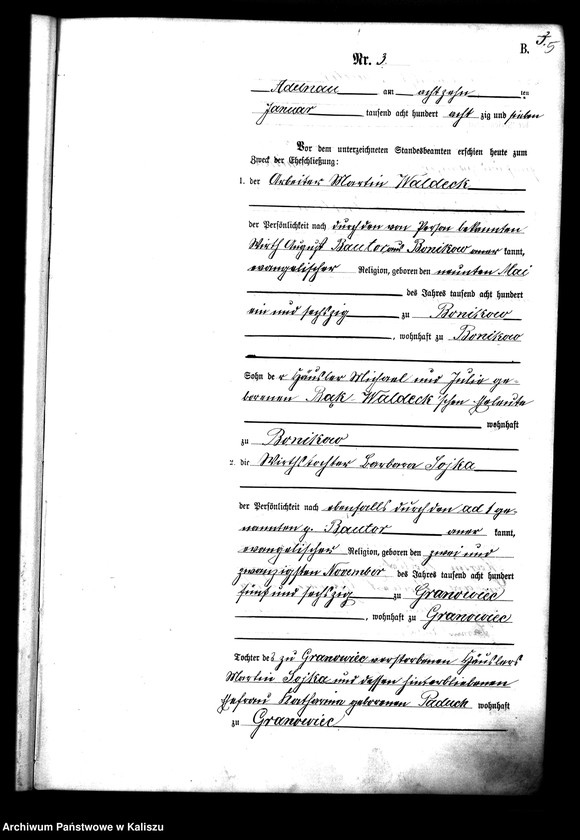 B.
5
Nr. 3.
Adelnau am achtzehn ten
Januar tausend acht hundert acht zig und sieben
Vor dem unterzeichneten Standesbeamten erschien heute zum
Zweck der Eheschließung:
1. der Arbeiter Martin Waldeck
der Persönlichkeit nach durch den von Person bekannten
Wirth August Bautor aus Bonikow aner kannt,
evangelischer Religion, geboren den neunten Mai
des Jahres tausend acht hundert
ein und sechszig zu Bonikow
, wohnhaft zu Bonikow
Sohn de r Häusler Michael und Julie ge-
borenen Bąk-Waldeck'schen Eheleute
wohnhaft
zu Bonikow
2. die Wirthstochter Barbara Sojka
der Persönlichkeit nach ebenfalls durch den ad 1 ge-
nannten p. Bautor aner kannt,
evangelischer Religion, geboren den zwei und
zwanzigsten November des Jahres tausend acht hundert
fünf und sechszig zu Granowiec
, wohnhaft zu Granowiec
Tochter des zu Granowiec verstorbenen Häuslers
Martin Sojka und dessen hinterbliebenen
Ehefrau Katharina geborenen Paduch wohnhaft
zu Granowiec
Archiwum Państwowe w Kaliszu